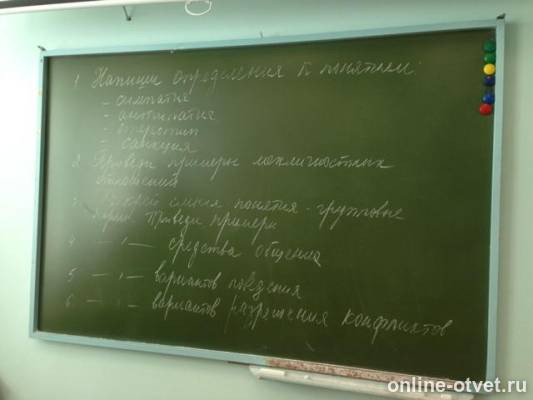 1. Напиши определения к понятиям:
- симпатия
- антипатия
- стереотип
- санкция
2. Приведи примеры межличностных
отношений
3. Раскрой смысл понятия - групповые
нормы. Приведи примеры
4 — " — средства общения
5 — " — вариантов поведения
6 — " — вариантов разрешения конфликтов
online-otvet.ru